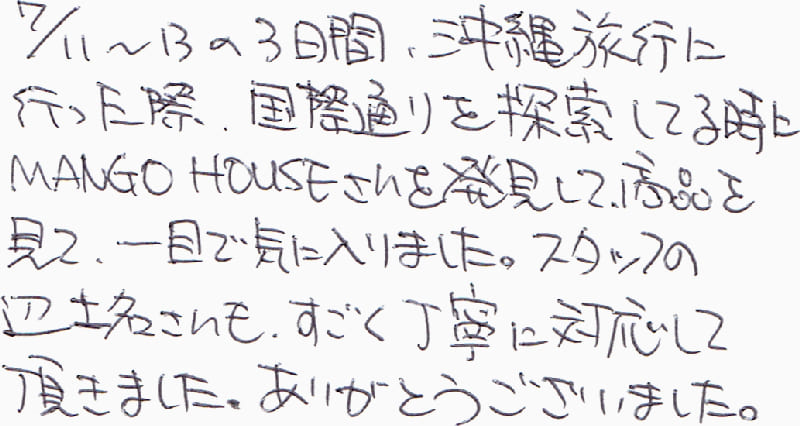 7/11〜13の3日間、沖縄旅行に
行った際、国際通りを探索してる時に
MANGO HOUSEさんを発見して、商品を
見て、一目で気に入りました。スタッフの
辺土名さんも、すごく丁寧に対応して
頂きました。ありがとうございました。